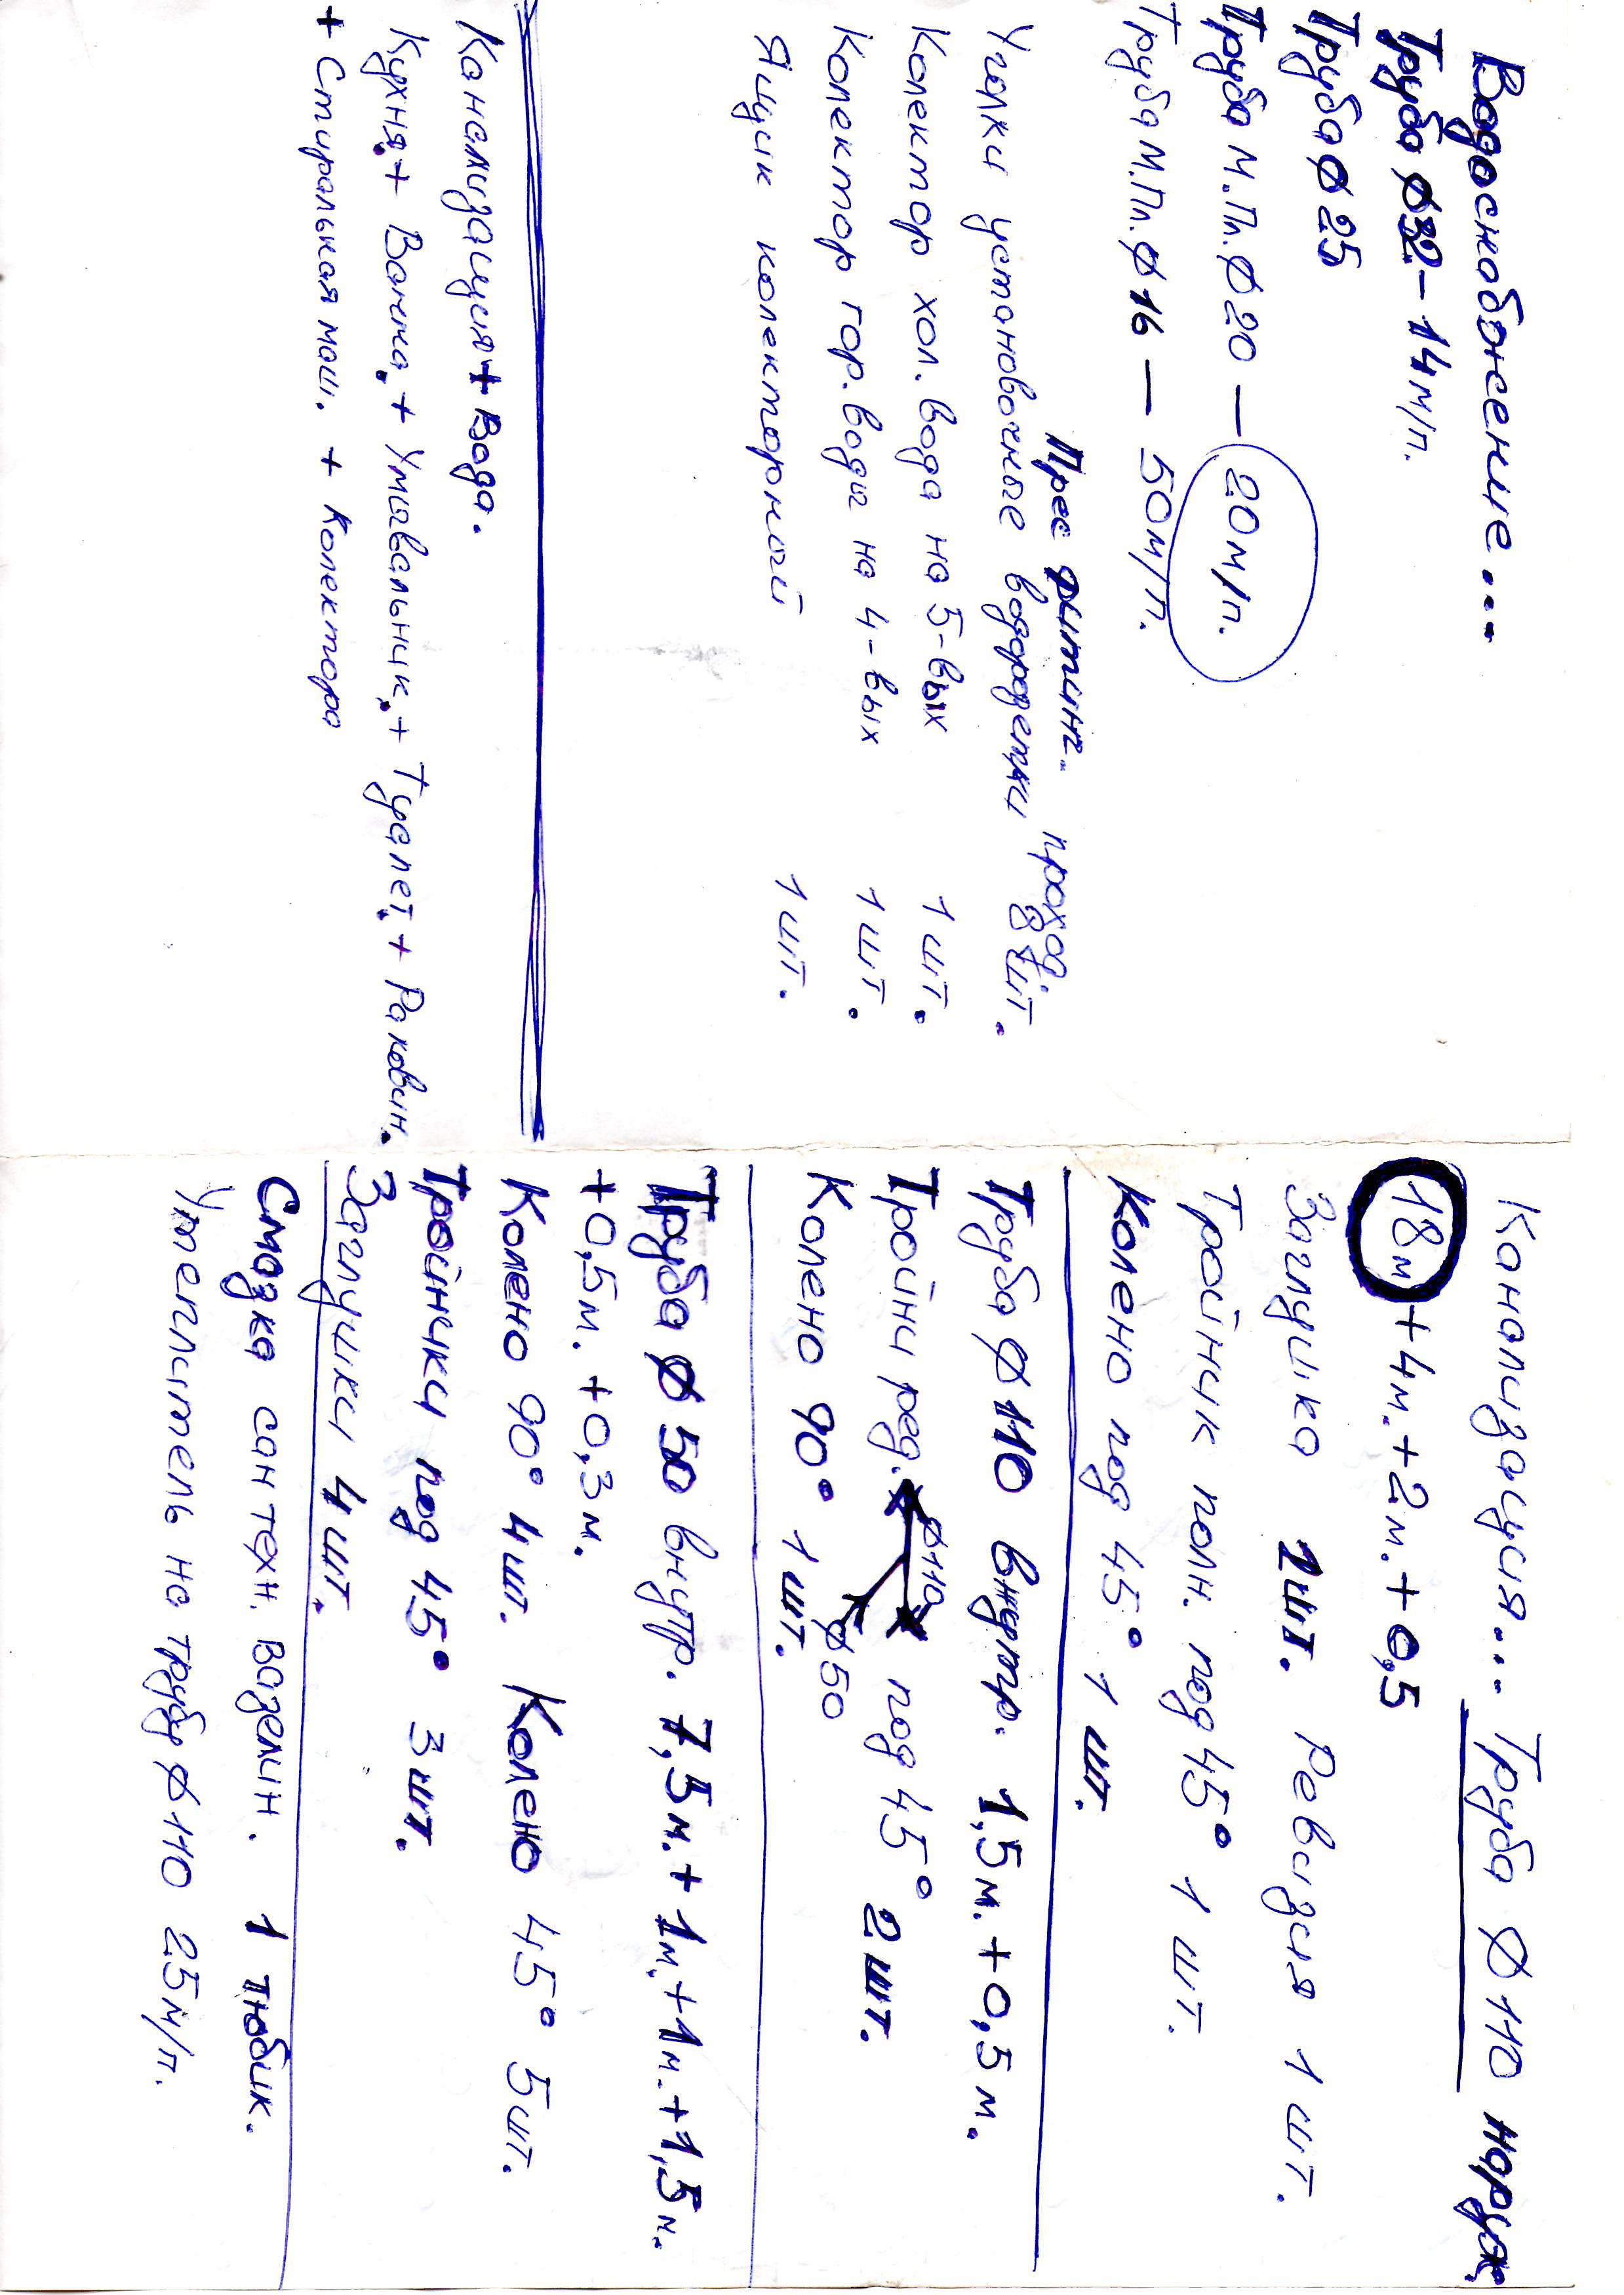 Водоснобжение...
Труба ø32-14м/п.
Труба ø25
Труба М.Пл. ø20 — 20м/п.
Труба М.Пл. ø16 — 50м/п.
Прес фитинг
проход.
Уголки установочные водорозетки 8 шт.
Колектор хол. вода на 5-вых 1 шт.
Колектор гор. воды на 4-вых 1 шт.
Ящик колекторный 1 шт.
Канализация + Вода.
Кухня. + Ванна. + Умывальник. + Туалет. + Раковин.
+ Стиральная маш. + Колектора
Канализация... Труба ø110 наруж.
18м + 4м. + 2м. + 0,5
Заглушка 2шт. Ревизия 1 шт.
Тройник полн. под 45° 1 шт.
Колено под 45° 1 шт.
Труба ø110 внутр. 1,5м. + 0,5м.
Тройни ред. ø110 ø50 под 45° 2шт.
Колено 90° 1 шт.
Труба ø50 внутр. 7,5м. + 1м. + 1м. + 1,5м.
+ 0,5м. + 0,3м.
Колено 90° 4шт. Колено 45° 5шт.
Тройники под 45° 3шт.
Заглушки 4шт.
Смазка сантехн. вазелин. 1 тюбик.
Утеплитель на трубу ø110 25м/п.